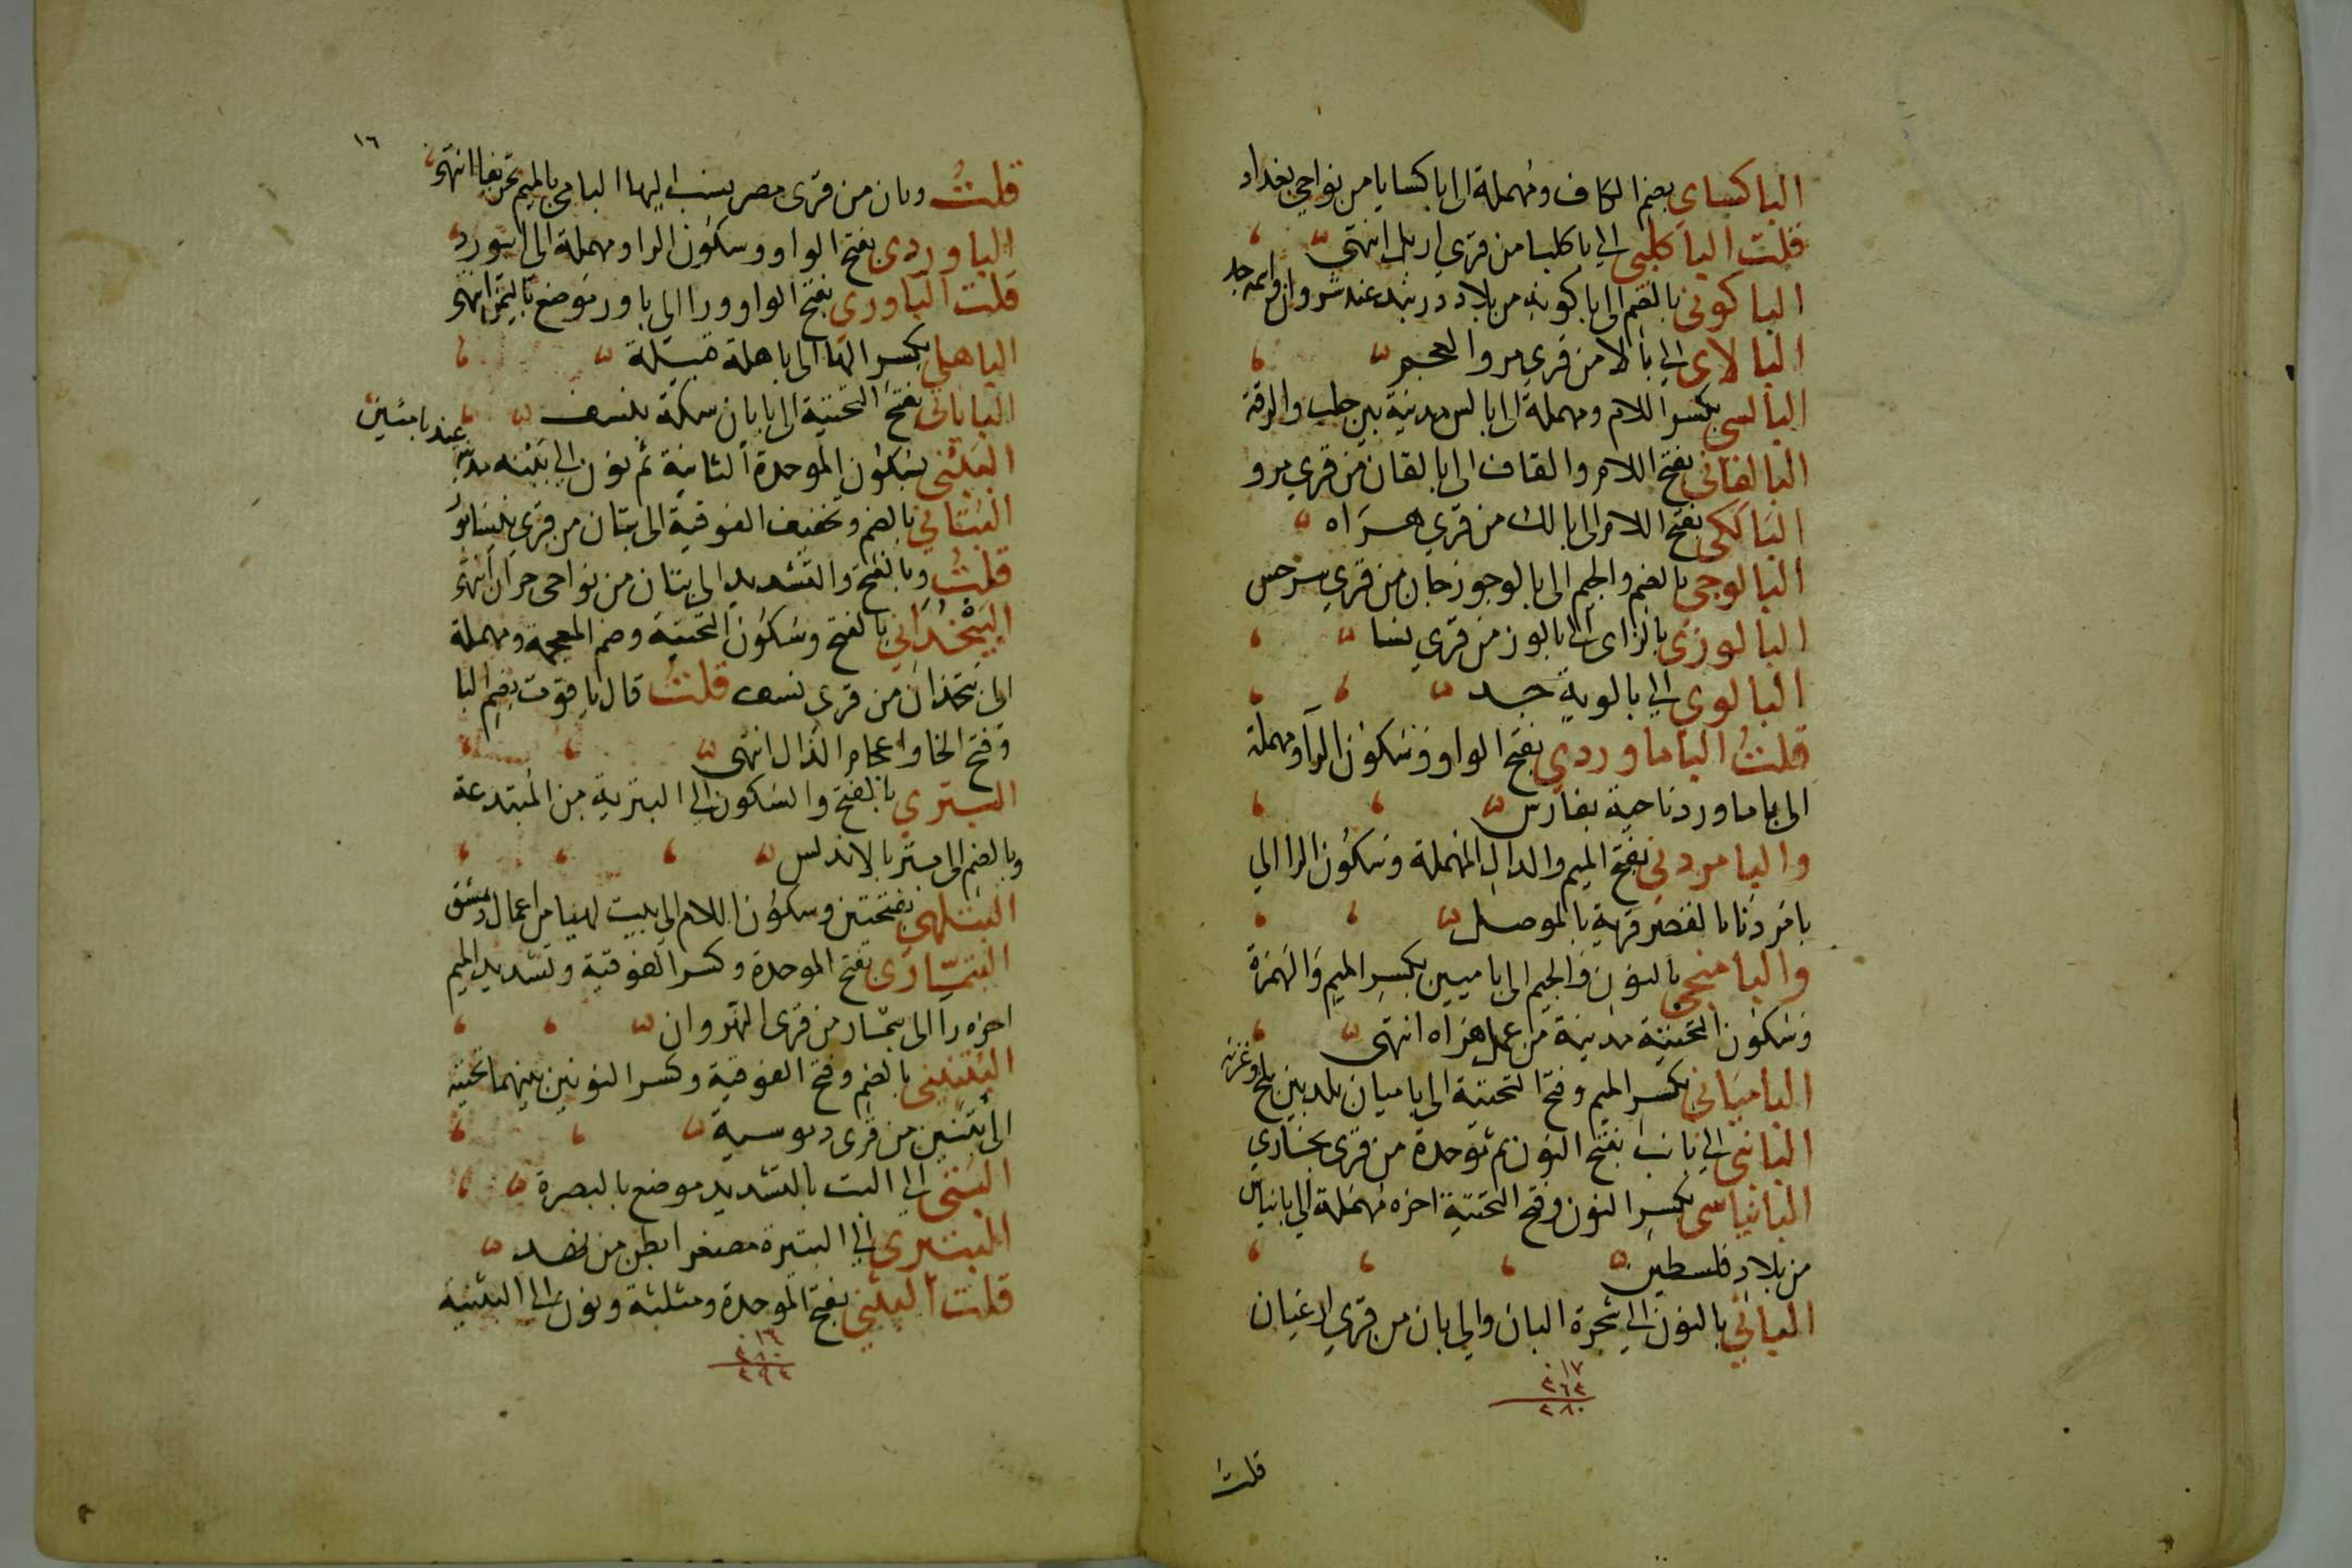 الباكساى بضم الكاف ومهملة الى باكسايا من نواحي بغداد
قلت الباكلبى الى باكلبا من قرى اربل انتهى
الباكوىى بالضم الى باكويه من بلاد دربند عند شروان
البالاى الى بالا من قرى مرو العجم
البالسى بكسر اللام ومهملة الى بالس مدينة بين حلب والرقة
البالقانى بفتح اللام والقاف الى بالقان من قرى مرو
البالكى بفتح اللام الى بالك من قري هراه
البالوجى بالضم والجيم الى بالوجوزجان من قري سرخس
البالوزى بالزاى الى بالوز من قري نسا
البالوي الى بالوية جد
قلت الباماوردى بفتح الواو وسكون الرا ومهملة
الى باماورد ناحية بفارس
والبامردنى بفتح الميم والدال المهملة وسكون الرا الى
بامردنا بالقصر قرية بالموصل
والبامنجى بالنون والجيم الى باميين بكسر الميم والهمزة
وسكون التحتية مدينة من عمل هراه انتهى
الباميانى بكسر الميم وفتح التحتية الى باميان بلد بين بلخ وغزنه
البانبى الى بانب بفتح النون ثم موحدة من قرى بخارى
البانياسى بكسر النون وفتح التحتية اخره مهملة الى بانياس
من بلاد فلسطين
البانى بالنون الى شجرة البان والى بان من قري ارغيان
١٧
٢٦٣
٢٨٠
قلت
١٦
قلت وبان من قرى مصر ينسب اليها البامى بالميم تحريفا انتهى
الباوردى بفتح الواو وسكون الرا ومهملة الى ابيورد
قلت الباورى بفتح الواو ورا الى باور موضع باليمن انتهى
الباهلي بكسر الها الى باهلة قبيلة
البابانى بفتح التحتية الى بايان سكة بنسف
الببنى بسكون الموحدة الثانية ثم نون الى ببنه مدينة عند بامئين
البتانى بالضم وتخفيف الفوقية الى بتان من قرى نيسابور
قلت وبالفتح والتشديد الى بتان من نواحى حران انتهى
البتخدانى بالفتح وسكون التحتية وضم المعجمة ومهملة
الى بتخدان من قرى نسف قلت قال ياقوت بضم البا
وفتح الخا واعجام الذال انتهى
البترى بالفتح والسكون الى البترية من المبتدعة
وبالضم الى بتر بالاندلس
البتلهى بفتحتين وسكون اللام الى بيت لهيا من اعمال دمشق
البتمارى بفتح الموحدة وكسر الفوقية وتشديد الميم
اخره را الى بتمار من قرى النهروان
البتنينى بالضم وفتح الفوقية وكسر النونين بينهما تحتيه
الى بتنين من قرى دبوسية
البتى الى البت بالتشديد موضع بالبصرة
البتيرى الى البتيرة مصغرا بطن من نهد
قلت البثنى بفتح الموحدة ومثلثة ونون الى البثنية
١٦
٢٨٠
٢٩٦